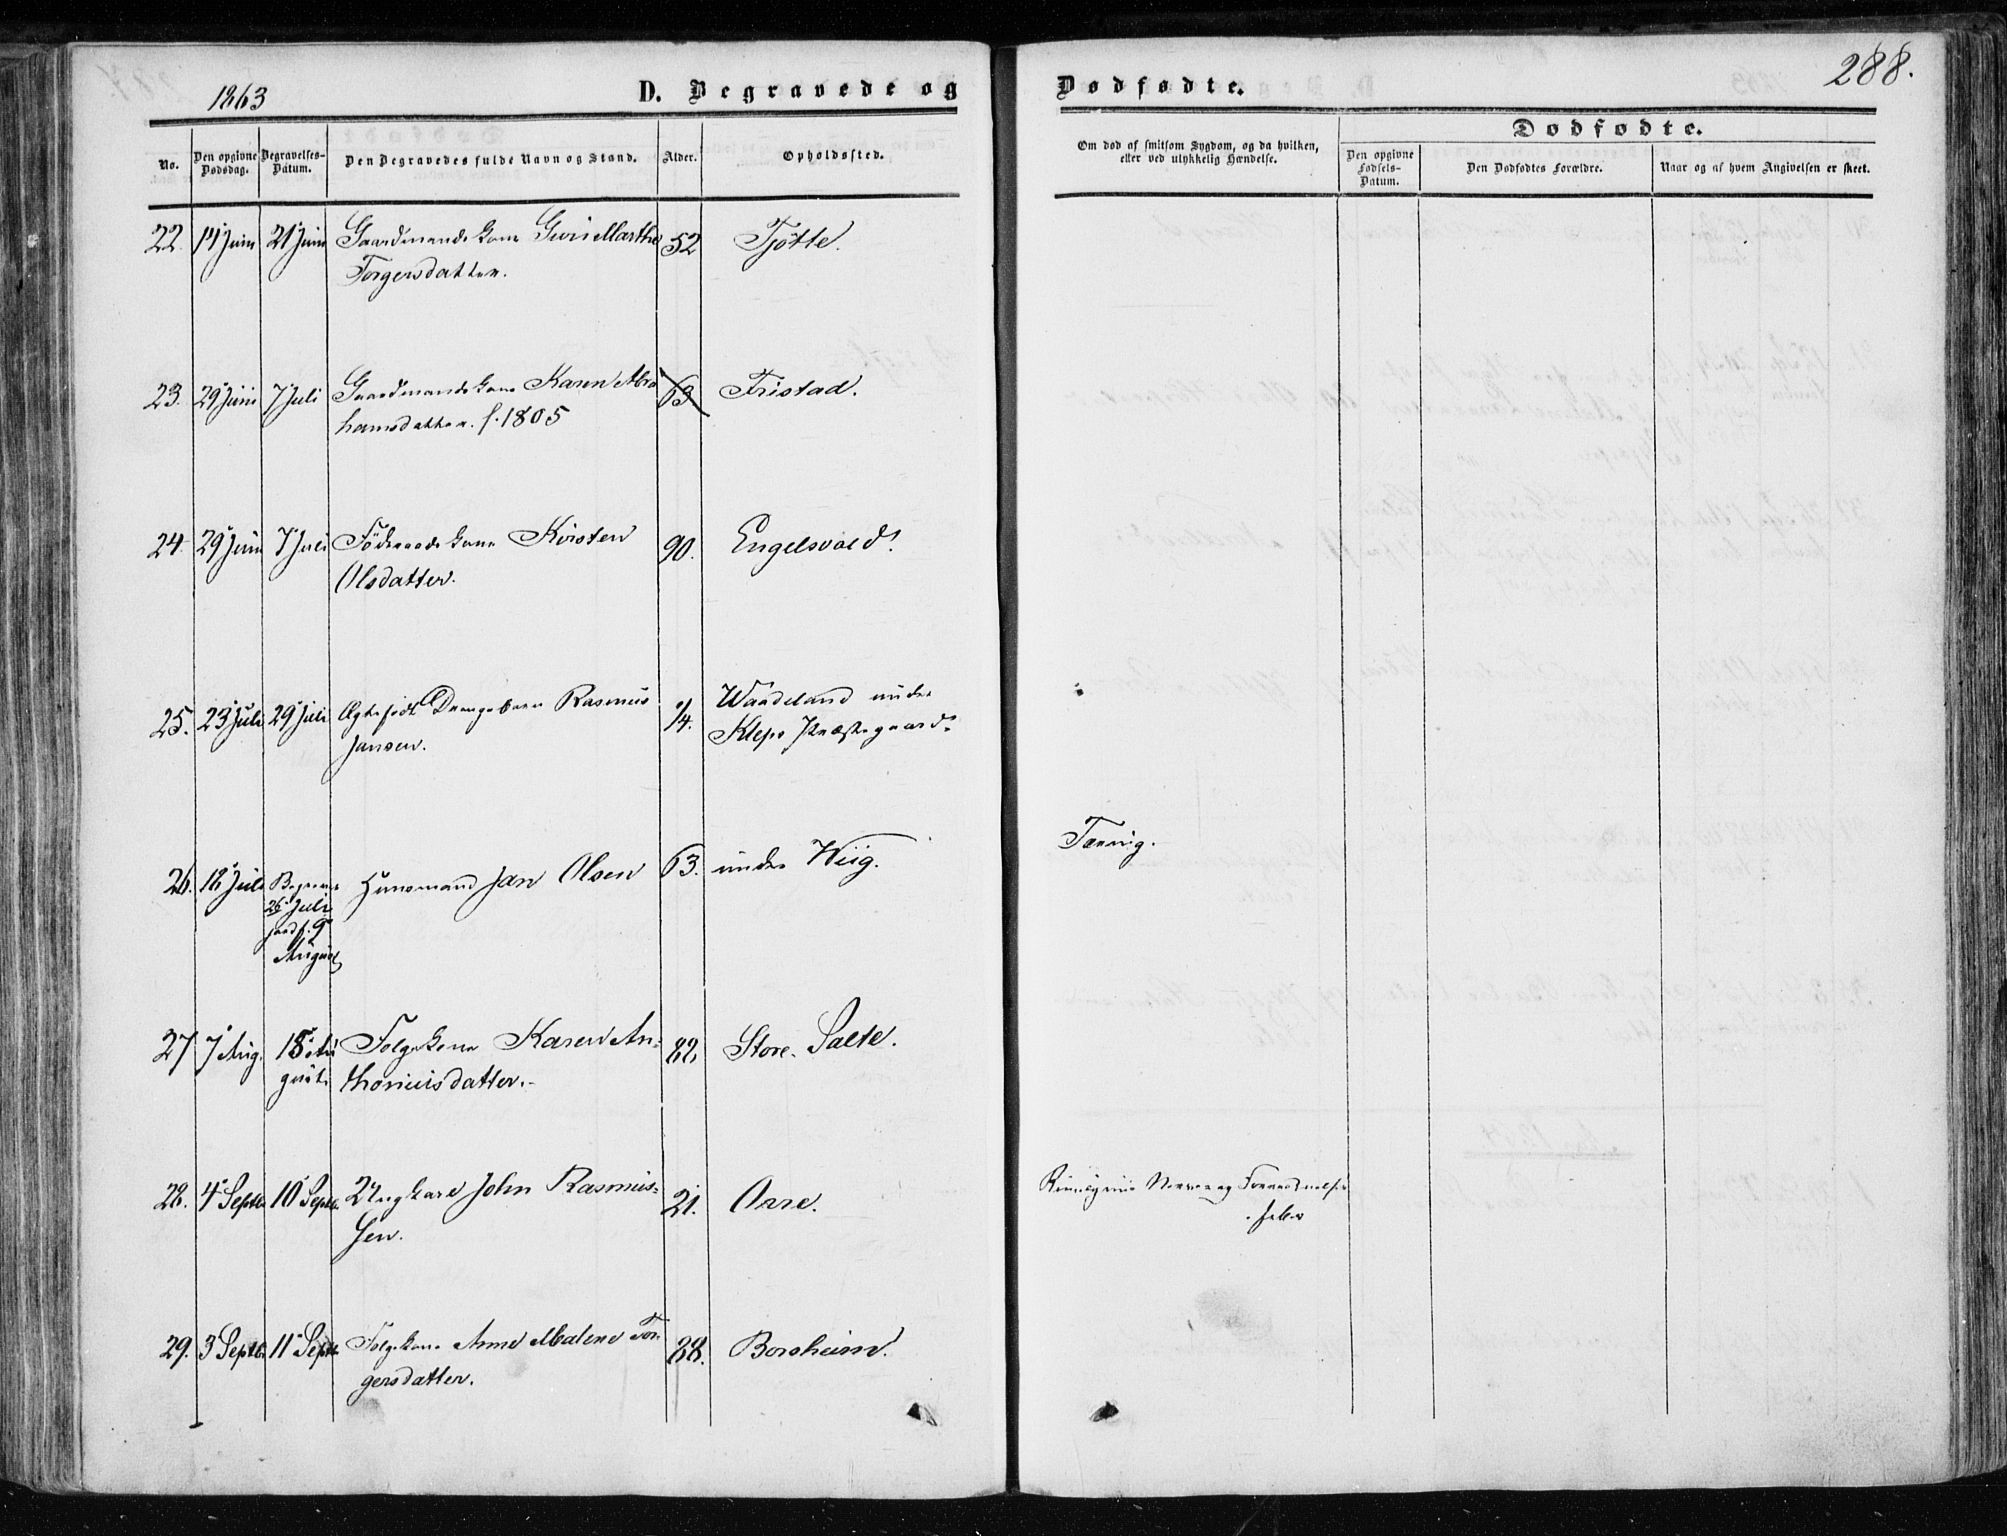 1863
D. Begravede og
Dødfødte.
288.
No.
Den opgivne Dødsdag.
Begravelses-Datum.
Den Begravedes fulde Navn og Stand.
Alder.
Opholdssted.
Om død af smitsom Sygdom, og da hvilken,
eller ved ulykkelig Hændelse.
Dødfødte.
Den opgivne Fødsels-Datum.
Den Dødfødtes Forældre.
Naar og af hvem Angivelsen er skeet.
22. 14 Juni 21 Juni Gaardmandskone Guri Marthe 52 Tjøtte.
Torgersdatter.
23. 29 Juni 7 Juli Gaardmandskone Karen Abra 63 Fristad.
hamsdatter. f. 1805
24. 29 Juni 7 Juli Føderaadskone Kirsten 90. Engelsvold.
Olsdatter.
25. 23 Juli 29 Juli Ægtefødt Drengebarn Rasmus 1/4. Waadeland under
Jansen. Kleps Præstegaard.
26. 18 Juli Huusmand Jan Olsen 63. under Wiig.
26 Juli
jordf. 9
August
Tæring.
27 7 Aug. 18 Au Folgekone Karen An- 82. Store-Salte.
gust. thoniusdatter.
28. 4 Septb. 10 Septb. Ungkarl John Rasmus- 21. Orre.
sen.
Nerve og
feber
29. 3 Septb. 11 Septb. Folgekone Anne Malene Tor 88. Borsheim.
gersdatter.